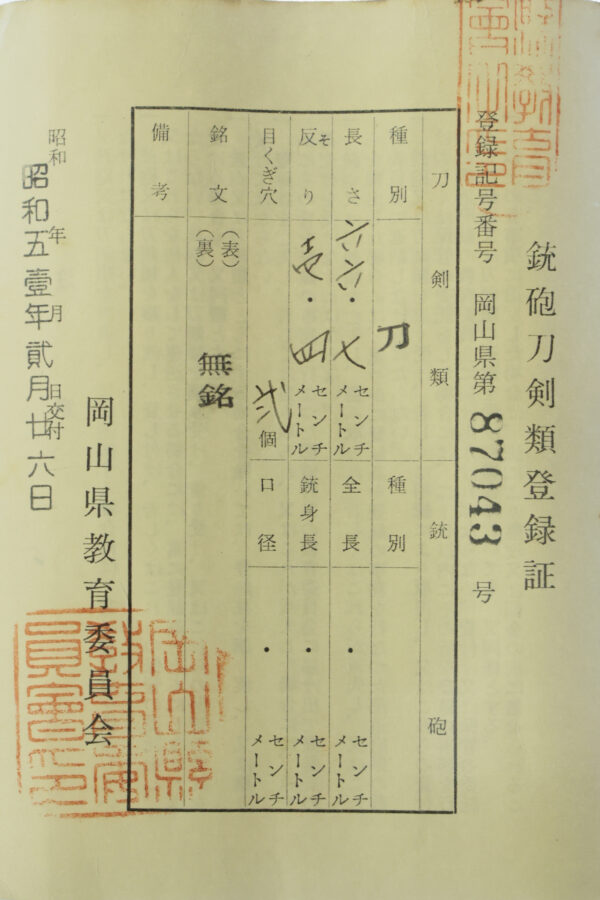 銃砲刀剣類登録証
登録記号番号 岡山県第 87043 号
刀剣類 銃砲
種別 刀 種別
長さ 六六・七 センチメートル 全長 ・ センチメートル
反り そ 壱・四 センチメートル 銃身長 ・ センチメートル
目くぎ穴 弐 個 口径 ・ センチメートル
銘文 (表)
(裏) 無銘
備考
岡山県教育委員会
昭和 年 月 日交付
昭和五壹年貮月廿六日